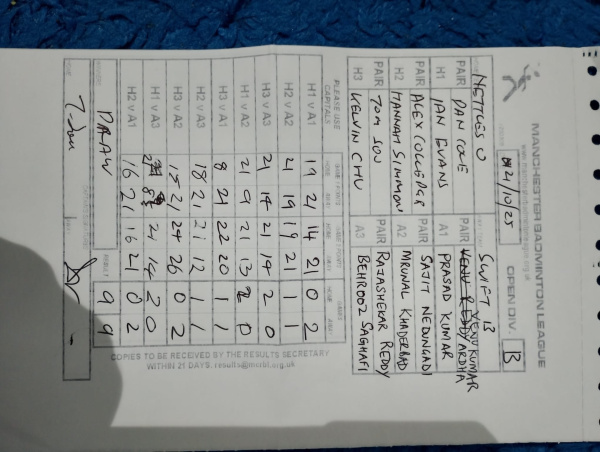 MANCHESTER BADMINTON LEAGUE
OPEN DIV. B
21/10/25
NETTLES SWIFT B
PAIR DAN COLE PAIR VENU KUMAR
H1 IAN EVANS A1 PRASAD KUMAR
PAIR ALEX PAIR SAJIT NEDUNGADI
H2 HANNAH SIMMON A2 MRUNAL KHADERBAD
PAIR TOM SOU PAIR RAJASHEKAR REDDY
H3 KELVIN CHU A3 BEHROOZ SAGHAFI
PLEASE USE CAPITALS GAME 1 POINTS GAME 2 POINTS GAMES
HOME AWAY HOME AWAY HOME AWAY
H1 v A1 19 21 14 21 0 2
H2 v A2 21 19 19 21 1 1
H3 v A3 21 14 21 14 2 0
H1 v A2 21 9 21 13 2 0
H3 v A1 8 21 22 20 1 1
H2 v A3 18 21 21 12 1 1
H3 v A2 15 21 24 26 0 2
H1 v A3 21 8 21 14 2 0
H2 v A1 16 21 16 21 0 2
DRAW RESULT 9 9
COPIES TO BE RECEIVED BY THE RESULTS SECRETARY
WITHIN 21 DAYS: results@mcrbl.org.uk